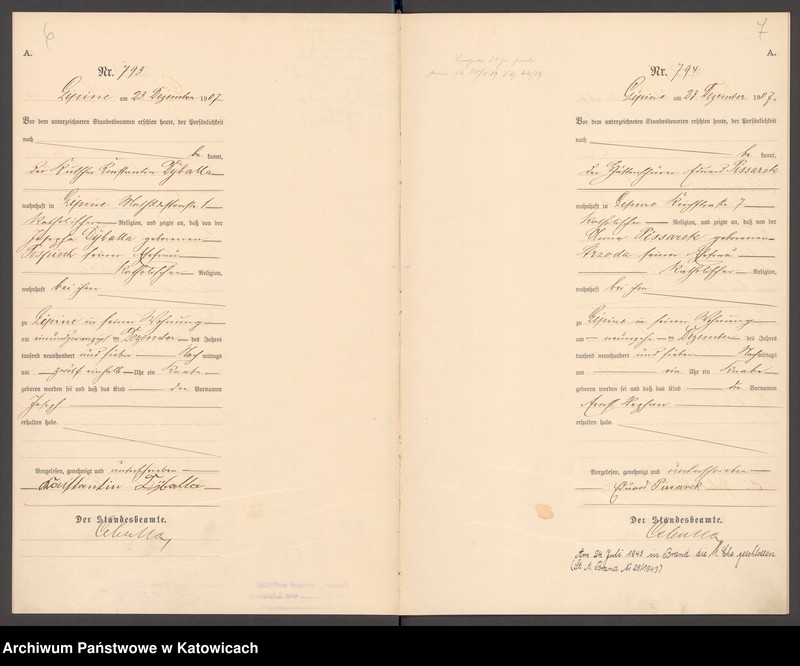 6
A.
Nr. 793
Lipine am 23 Dezember 1907
Vor dem unterzeichneten Standesbeamten erschien heute, der Persönlichkeit
nach
be kannt,
der Kutscher Konstantin Dÿballa
wohnhaft in Lipine
katholischer Religion, und zeigte an, daß von der
Josepha Dÿballa geborenen
seiner Ehefrau
katholischer Religion,
wohnhaft bei ihm
zu Lipine in seiner Wohnung
am einundzwanzigsten Dezember des Jahres
tausend neunhundert und sieben Nach mittags
um zwölf einhalb Uhr ein Knabe
geboren worden sei und daß das Kind den Vornamen
Joseph
erhalten habe.
Vorgelesen, genehmigt und unterschrieben
Konstantin Dÿballa
Der Standesbeamte.
7
A.
Nr. 794
Lipine am 23 Dezember 1907.
Vor dem unterzeichneten Standesbeamten erschien heute, der Persönlichkeit
nach
be kannt,
der Eduard Pissarek
wohnhaft in Lipine Kirchstraße 7
katholischer Religion, und zeigte an, daß von der
Anna Pissarek geborenen
seiner Ehefrau
katholischer Religion,
wohnhaft bei ihm
zu Lipine in seiner Wohnung
am Dezember des Jahres
tausend neunhundert und sieben Nachmittags
um ein Uhr ein Knabe
geboren worden sei und daß das Kind die Vornamen
erhalten habe.
Vorgelesen, genehmigt und unterschrieben
Eduard Pissarek
Der Standesbeamte.
Am 24. Juli 1943 in Brand die Ehe geschlossen
(St. A. Brand Nr. 23/1943)
Archiwum Państwowe w Katowicach